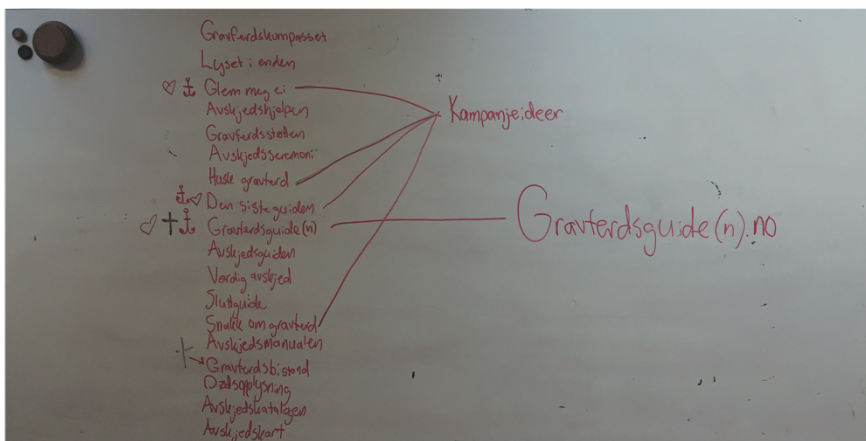 Gravferdskompasset
Lyset i enden
Glem meg ei
Avskjedshjelpen
Gravferdsstøtten
Avskjedsseremoni
Husk gravferd
Den siste guiden
Gravferdsguide(n)
Avskjedsguiden
Verdig avskjed
Sluttguide
Snakk om gravferd
Avskjedsmanualen
Gravferdsbistand
Dødsopplysning
Avskjedskatalogen
Avskjedskart
Kampanjeideer
Gravferdsguide(n).no